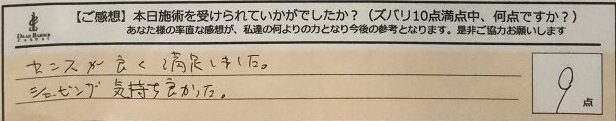 【ご感想】本日施術を受けられていかがでしたか？（ズバリ10点満点中、何点ですか？）
あなた様の率直な感想が、私達の何よりの力となり今後の参考となります。是非ご協力お願いします
DEAR BARBER
センスが良く満足しました。
シェービング気持ち良かった。
9
点